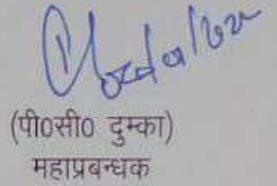 (पी0सी0 दुम्का)
महाप्रबन्धक